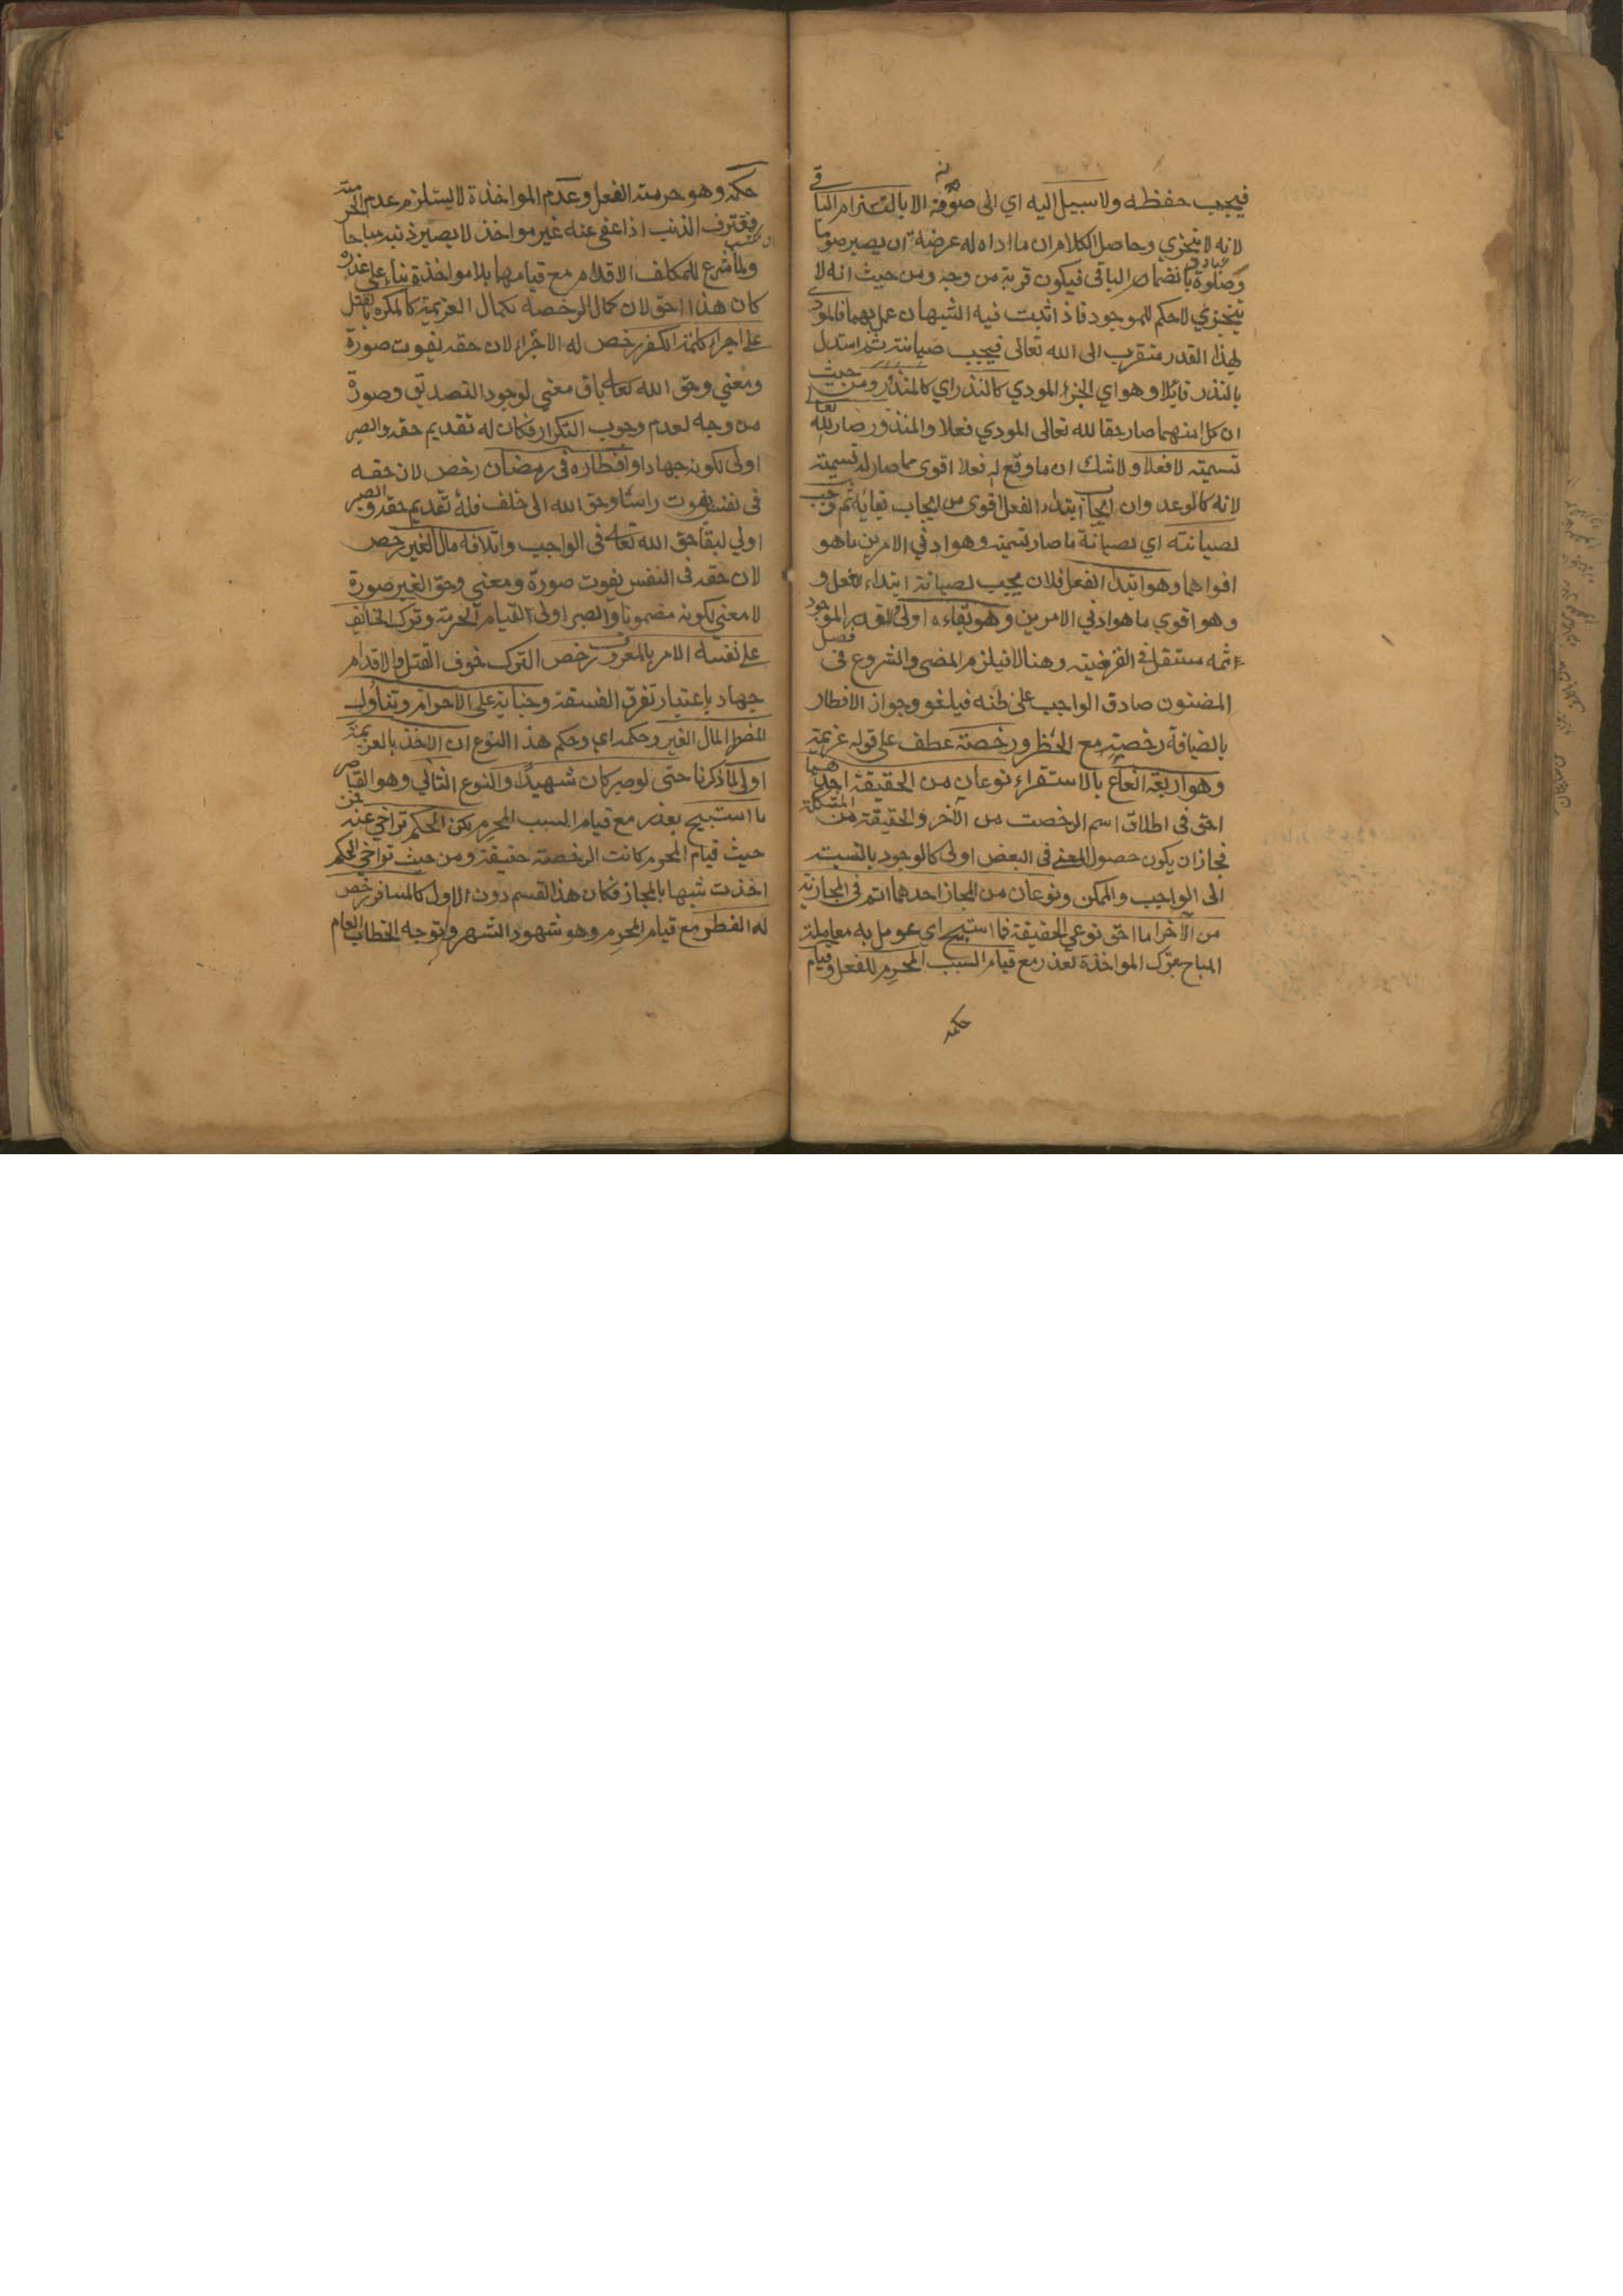 فيجب حفظه ولا سبيل اليه اي الى صونه الا بالتزام الباقي
لانه لا يتجزي وحاصل الكلام ان ما اداه له عرضة ان يصير صوما
وصلوة بانضمام الباقي فيكون قربة من وجه ومن حيث انه لا
يتجزي لا حكم للموجود فاذا ثبت فيه الشبهان عمل بهما فالمودي
بهذا القدر متقرب الى الله تعالى فيجب صيانته ثم استدل
بالنذر قايلا وهو اي الجزء المودي كالنذر اي كالمنذور من حيث
ان كلا منهما صار حقا لله تعالى المودي فعلا والمنذور صار لله تعالى
تسمية لا فعلا ولا شك ان ما وقع له فعلا اقوى مما صار له تسمية
لانه كالوعد وان ايجاب ابتداء الفعل اقوى من ايجاب بقايه ثم وجب
لصيانته اي لصيانة ما صار تسمية وهو ادني الامرين ما هو
اقواهما وهو ابتدا الفعل فلان يجب لصيانة ابتداء الفعل و
هو اقوي ما هو ادني الامرين وهو بقاءه اولى القه الموجود
ثمه مستقل في الفرضية وهنا لا فيلزم المضي والشروع في فصل
المضنون صادق الواجب على ظنه فيلغو وجواز الافطار
بالضيافة رخصة مع الحظر ورخصة عطف على قوله عزيمة
وهو اربعة انواع بالاستقراء نوعان من الحقيقة احدهما
احق في اطلاق اسم الرخصت من الآخر والحقيقة من المشككة
فجاز ان يكون حصول المعنى في البعض اولى كالوجود بالنسبت
الى الواجب والممكن ونوعان من المجاز احدهما اتم في المجازية
من الآخر اما احق نوعي الحقيقة فما استبيح اي عومل به معاملة
المباح بترك المواخذة لعذر مع قيام السبب المحرم للفعل وقيام
حكمه
حكمه وهو حرمة الفعل وعدم المواخذة لا يستلزم عدم الحرمة
فمقترف الذنب اذا عفي عنه غير مواخذ لا يصير ذنبه مباحا
ولما شرع للمكلف الاقدام مع قيامهما بلا مواخذة بناء على عذره
كان هذا احق لان كمال الرخصة بكمال العزيمة كالمكره بالقتل
على اجراء كلمة الكفر رخص له الاجراء لان حقه يفوت صورة
ومعني وحق الله تعالى باق معني لوجود التصديق وصورة
من وجه لعدم وجوب التكرار فكان له تقديم حقه والصبر
اولى لكونه جهادا وافطاره في رمضان رخص لان حقه
في نفسه يفوت راسا وحق الله الى خلف فله تقديم حقه والصبر
اولي لبقا حق الله تعالى في الواجب واتلافه مال الغير رخص
لان حقه في النفس يفوت صورة ومعني وحق الغير صورة
لا معني لكونه مضمونا والصبر اولى لقيام الحرمة وترك الخائف
على نفسه الامر بالمعروف رخص الترك خوف القتل والاقدام
جهاد باعتبار تفرق الفسقة وجناية على الاحرام وتناول
المضطر المال الغير وحكمه اي وحكم هذا النوع ان الاخذ بالعزيمة
اولى لما ذكرنا حتى لو صبر كان شهيدا والنوع الثاني وهو القاصر
ما استبيح بعذر مع قيام السبب المحرم لكن الحكم تراخي عنه فمن
حيث قيام المحرم كانت الرخصة حقيقة ومن حيث تراخي الحكم
اخذت شبها بالمجاز فكان هذا القسم دون الاول كالمسافر رخص
له الفطر مع قيام المحرم وهو شهود الشهر وتوجه الخطاب العام